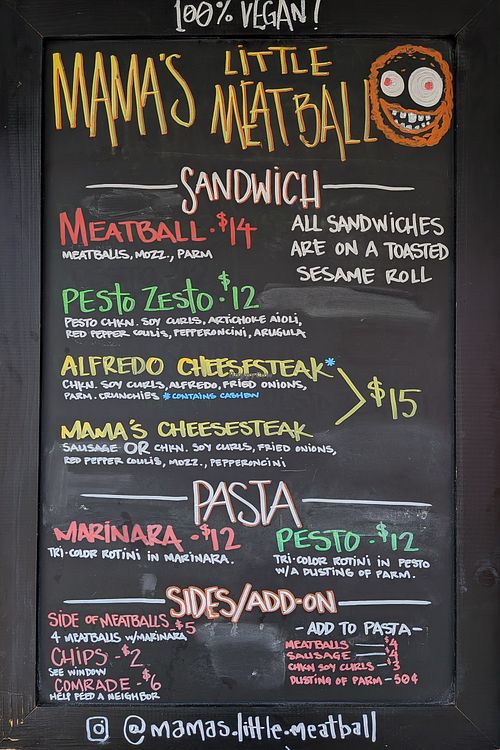 100% VEGAN!
MAMA'S LITTLE MEATBALL
SANDWICH
MEATBALL · $14
MEATBALLS, MOZZ., PARM
ALL SANDWICHES
ARE ON A TOASTED
SESAME ROLL
PESTO ZESTO · $12
PESTO CHKN. SOY CURLS, ARTICHOKE AIOLI,
RED PEPPER COULIS, PEPPERONCINI, ARUGULA
ALFREDO CHEESESTEAK*
CHKN. SOY CURLS, ALFREDO, FRIED ONIONS,
PARM. CRUNCHIES *CONTAINS CASHEW
$15
MAMA'S CHEESESTEAK
SAUSAGE OR CHKN. SOY CURLS, FRIED ONIONS,
RED PEPPER COULIS, MOZZ., PEPPERONCINI
PASTA
MARINARA - $12
TRI-COLOR ROTINI IN MARINARA.
PESTO - $12
TRI-COLOR ROTINI IN PESTO
W/A DUSTING OF PARM.
SIDES/ADD-ON
SIDE OF MEATBALLS $5
4 MEATBALLS W/MARINARA
CHIPS - $2
SEE WINDOW
COMRADE - $6
HELP FEED A NEIGHBOR
- ADD TO PASTA -
MEATBALLS — $4
SAUSAGE — $4
CHKN SOY CURLS — $3
DUSTING OF PARM - 50¢
@mamas.little.meatball